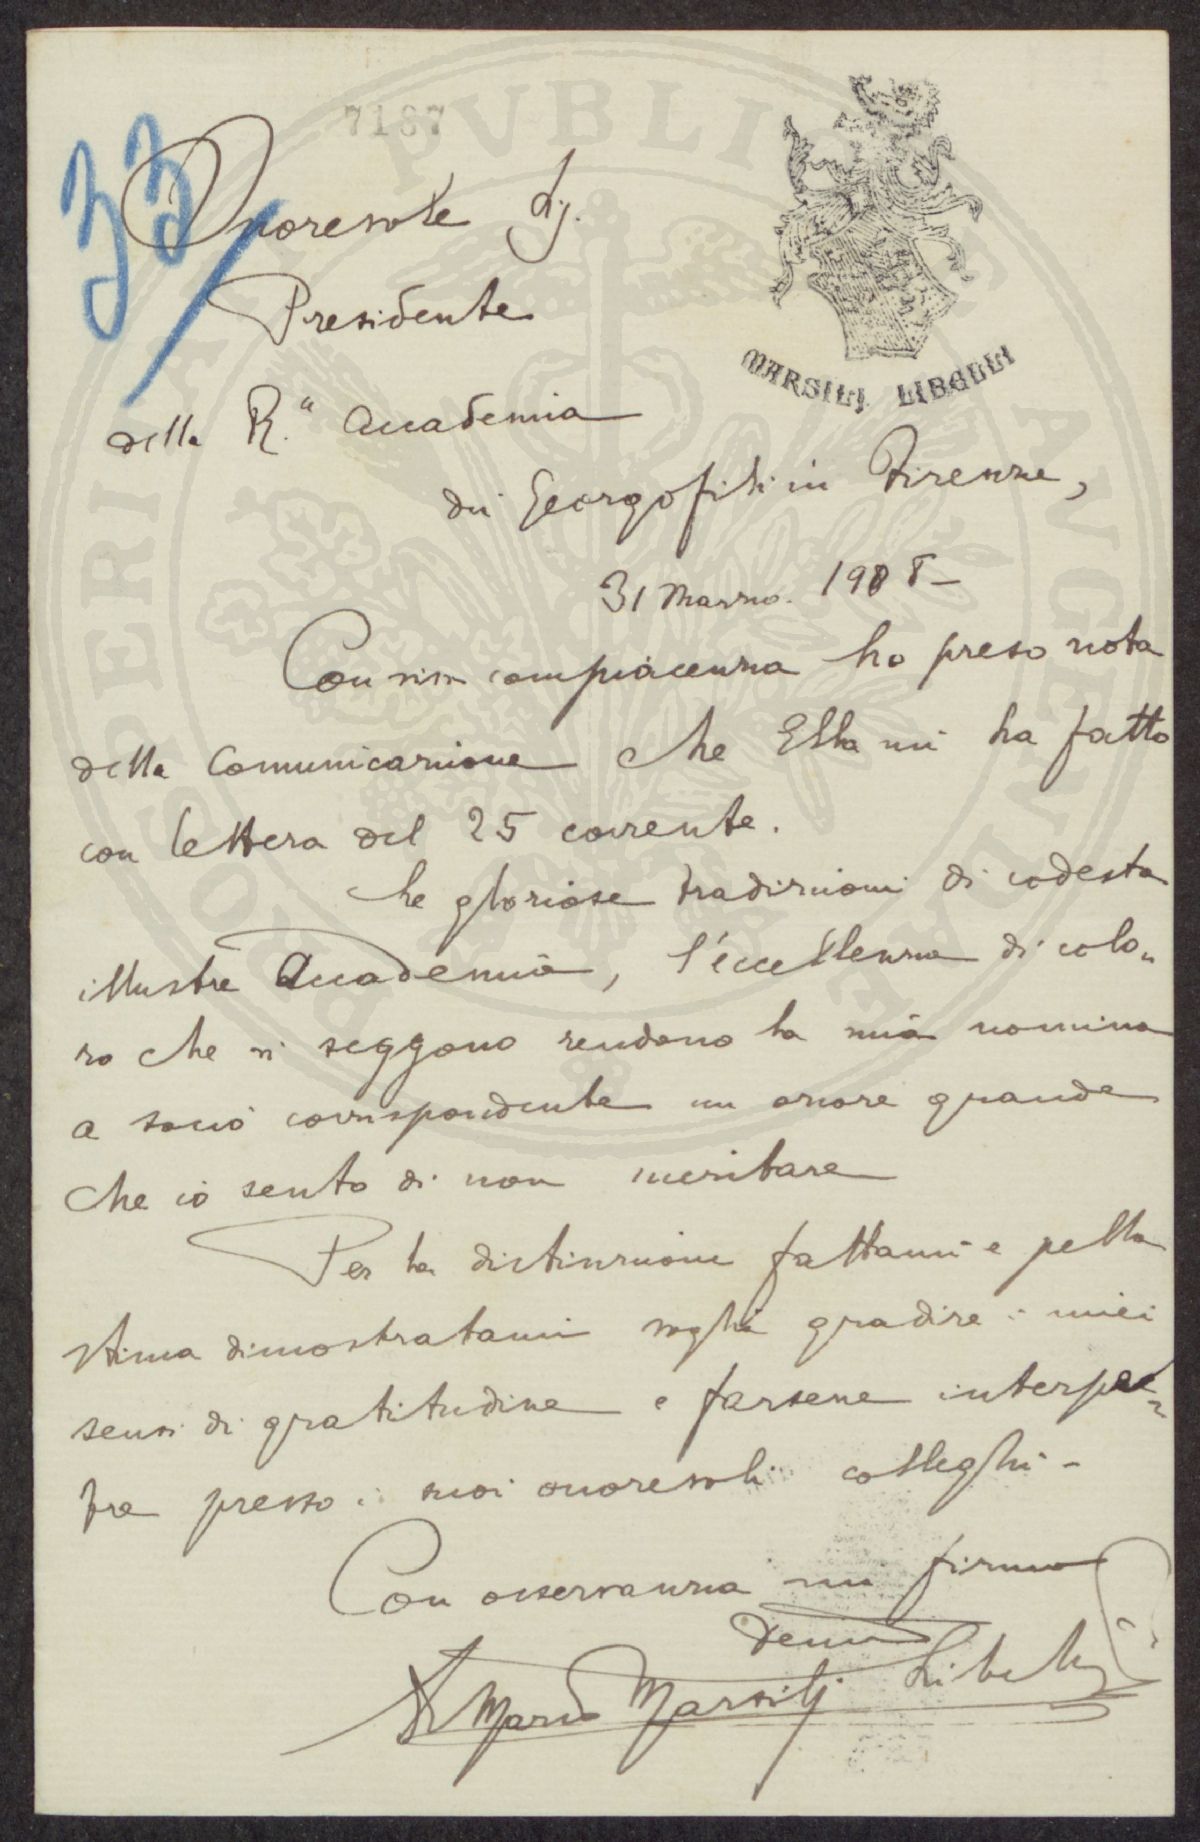 7187
33
MARSILJ LIBELLI
Onorevole Sig.
Presidente
della R.a Accademia
dei Georgofili in Firenze,
31 Marzo. 1908 –
Con viva compiacenza ho preso nota
della comunicazione che Ella mi ha fatto
con lettera del 25 corrente.
Le gloriose tradizioni di codesta
illustre Accademia, l'eccellenza di colo„
ro che vi seggono rendono la mia nomina
a socio corrispondente un onore grande
che io sento di non meritare
Per la distinzione fattami e pella
stima dimostratami voglia gradire i miei
sensi di gratitudine e farsene interpe„
tre presso i suoi onorevoli colleghi –
Con osservanza mi firmo
Dr Mario Marsilj Libelli
PVBLICAE
PROSPERITATI
AVGENDAE